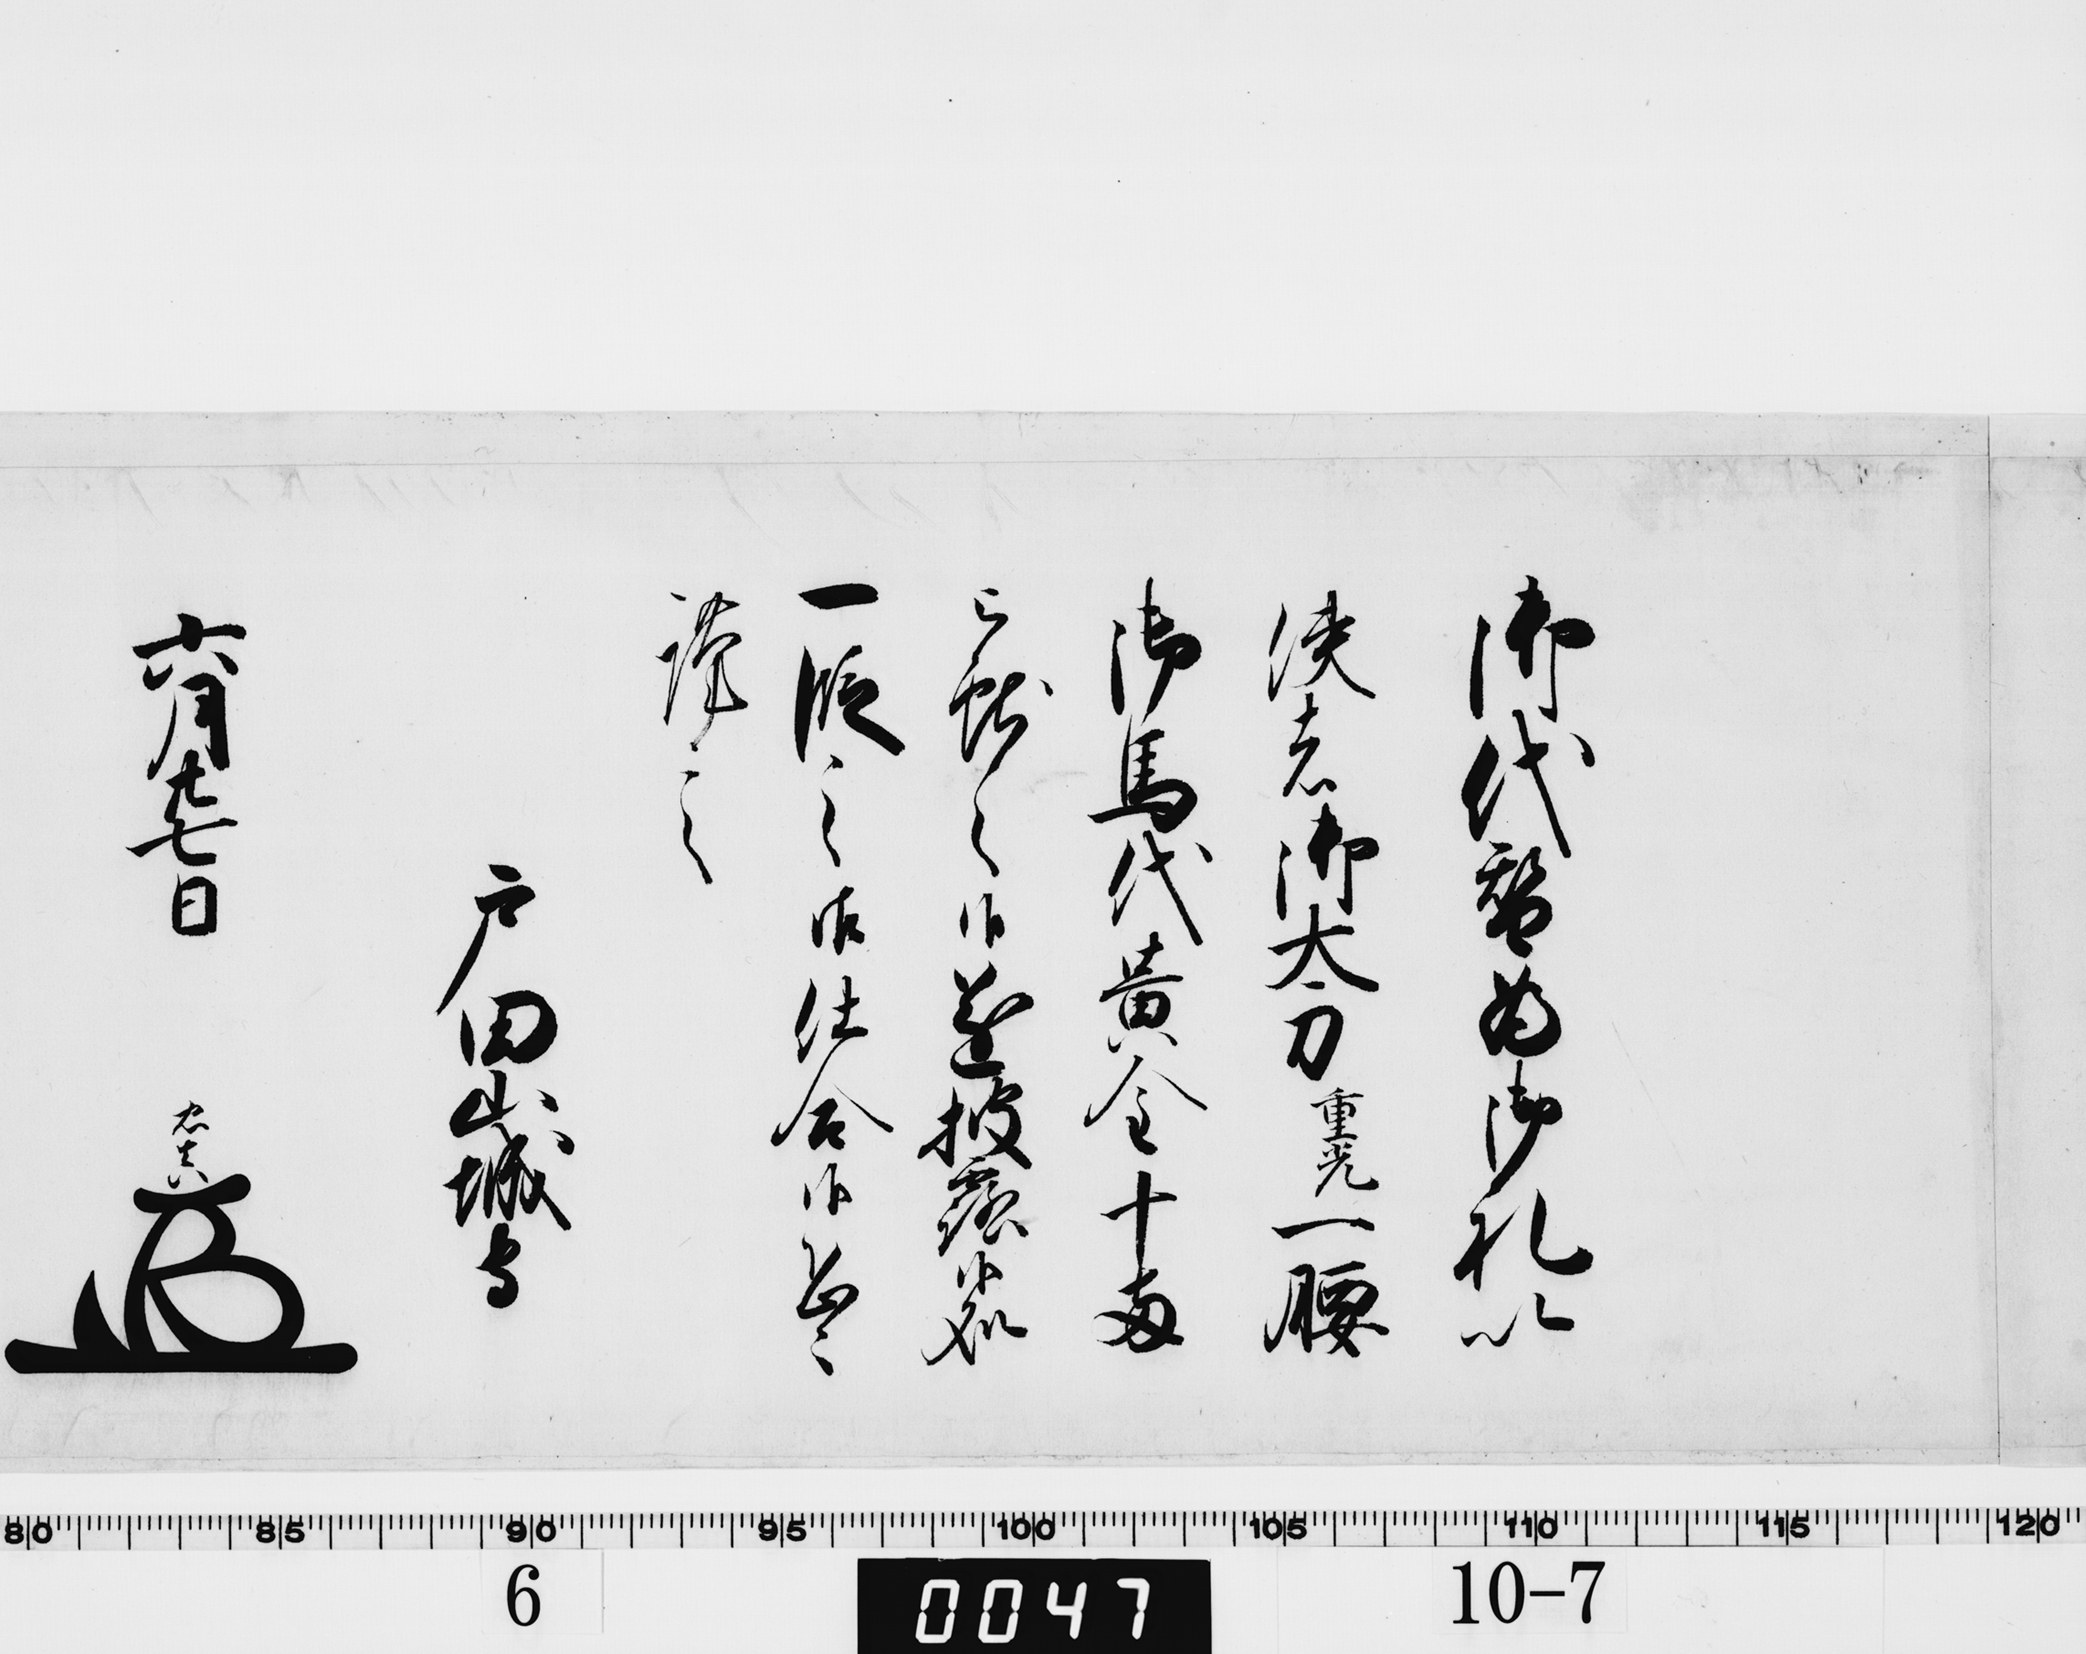 御代替為御礼以
使者御太刀重光一腰
御馬代黄金十両
被献之候遂披露候処
一段之御仕合候恐々
謹言
戸田山城守
六月廿七日
忠真
80 85 90 95 100 105 110 115 120
6
0047
10-7